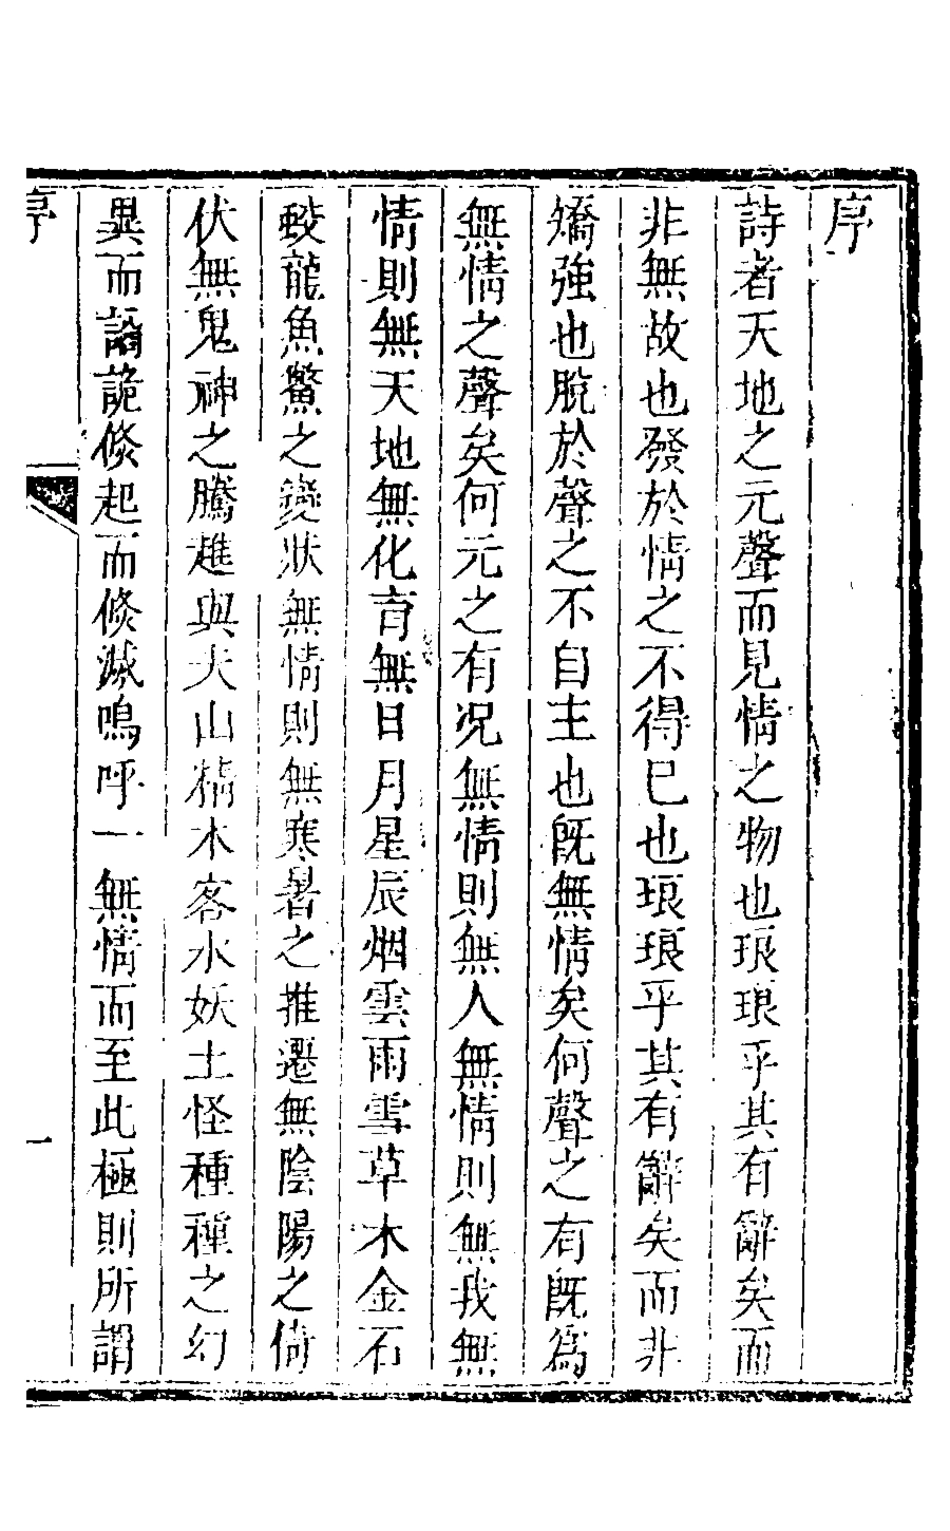 序
詩者天地之元聲而見情之物也琅琅乎其有辭矣而
非無故也發於情之不得已也琅琅乎其有辭矣而非
矯強也脫於聲之不自主也旣無情矣何聲之有旣爲
無情之聲矣何元之有况無情則無人無情則無我無
情則無天地無化育無日月星辰烟雲雨雪草木金石
蛟龍魚鱉之變狀無情則無寒暑之推遷無陰陽之倚
伏無鬼神之騰趡與夫山精木客水妖土怪種種之幻
異而譎詭倐起而倐滅嗚呼一無情而至此極則所謂
序
一